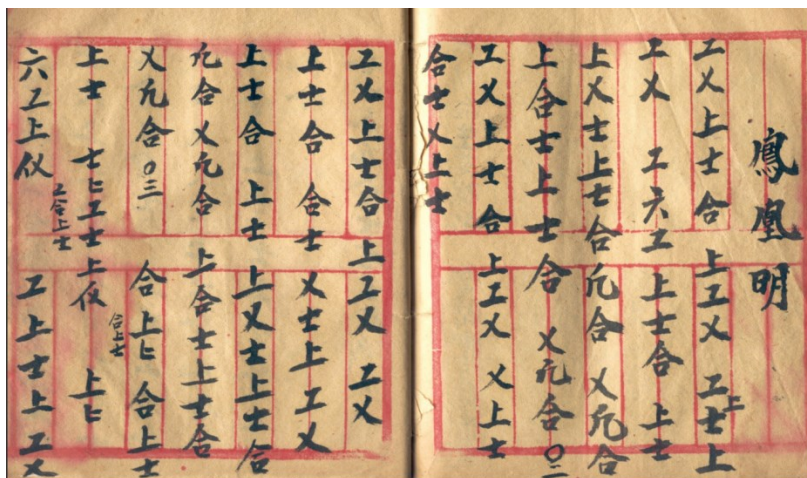 鳳凰明
工乂上士合 上工乂 工士上
上
工乂 工六工 上士合 上士
上乂士上士合凢合 乂凢合
上合士上士合 乂凢合 〇二
工乂上士合 上工乂 乂上士
合士乂上士
工乂上士合 上工乂 工乂
上士合 合士 乂士上工乂
上士合 上士 上乂士上士合
凢合乂凢合 上合士上士合
乂凢合〇三 合上匕 合上士
合上士
上士 士匕工士上仪 上匕
工合上士
六工上仪 工上士上工乂